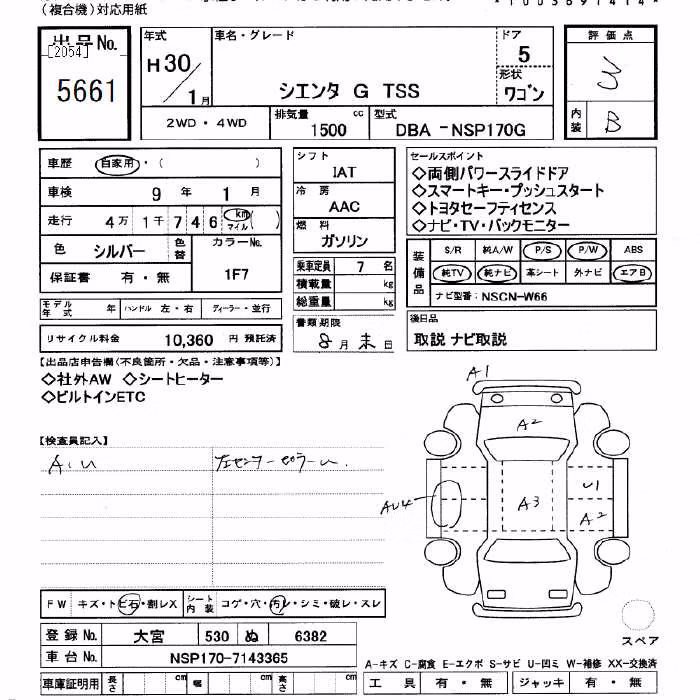 (複合機)対応用紙
*1003691414*
出品No.
[2054]
5661
年式
H30/1月
車名・グレード
シエンタ G TSS
ドア
5
形状
ワゴン
評価点
3
内装
B
2WD・4WD
排気量
1500 cc
型式
DBA -NSP170G
車歴
自家用・( )
車検
9 年 1 月
走行
4万1千746 km マイル( )
色
シルバー
色替
カラーNo.
1F7
保証書
有・無
モデル年式
年
ハンドル 左・右
ディーラー・並行
リサイクル料金
10,360 円 預託済
シフト
IAT
冷房
AAC
燃料
ガソリン
乗車定員 7 名
積載量 kg
総重量 kg
書類期限
8月末日
セールスポイント
◇両側パワースライドドア
◇スマートキー・プッシュスタート
◇トヨタセーフティセンス
◇ナビ・TV・バックモニター
装備品
S/R 純A/W P/S P/W ABS
純TV 純ナビ 革シート 外ナビ エアB
ナビ型番: NSCN-W66
後日品
取説 ナビ取説
【出品店申告欄(不良箇所・欠品・注意事項等)】
◇社外AW ◇シートヒーター
◇ビルトインETC
【検査員記入】
A.U
左センターピラーU.
A1
A2
U1
A3
A2
AU4
FW キズ・トビ石・割レX
シート内装 コゲ・穴・汚レ・シミ・破レ・スレ
登録No. 大宮 530 ぬ 6382
車台No. NSP170-7143365
車庫証明用 長さ cm 幅 cm 高さ cm
スペア
A-キズ C-腐食 E-エクボ S-サビ U-凹ミ W-補修 XX-交換済
工具 有・無 ジャッキ 有・無